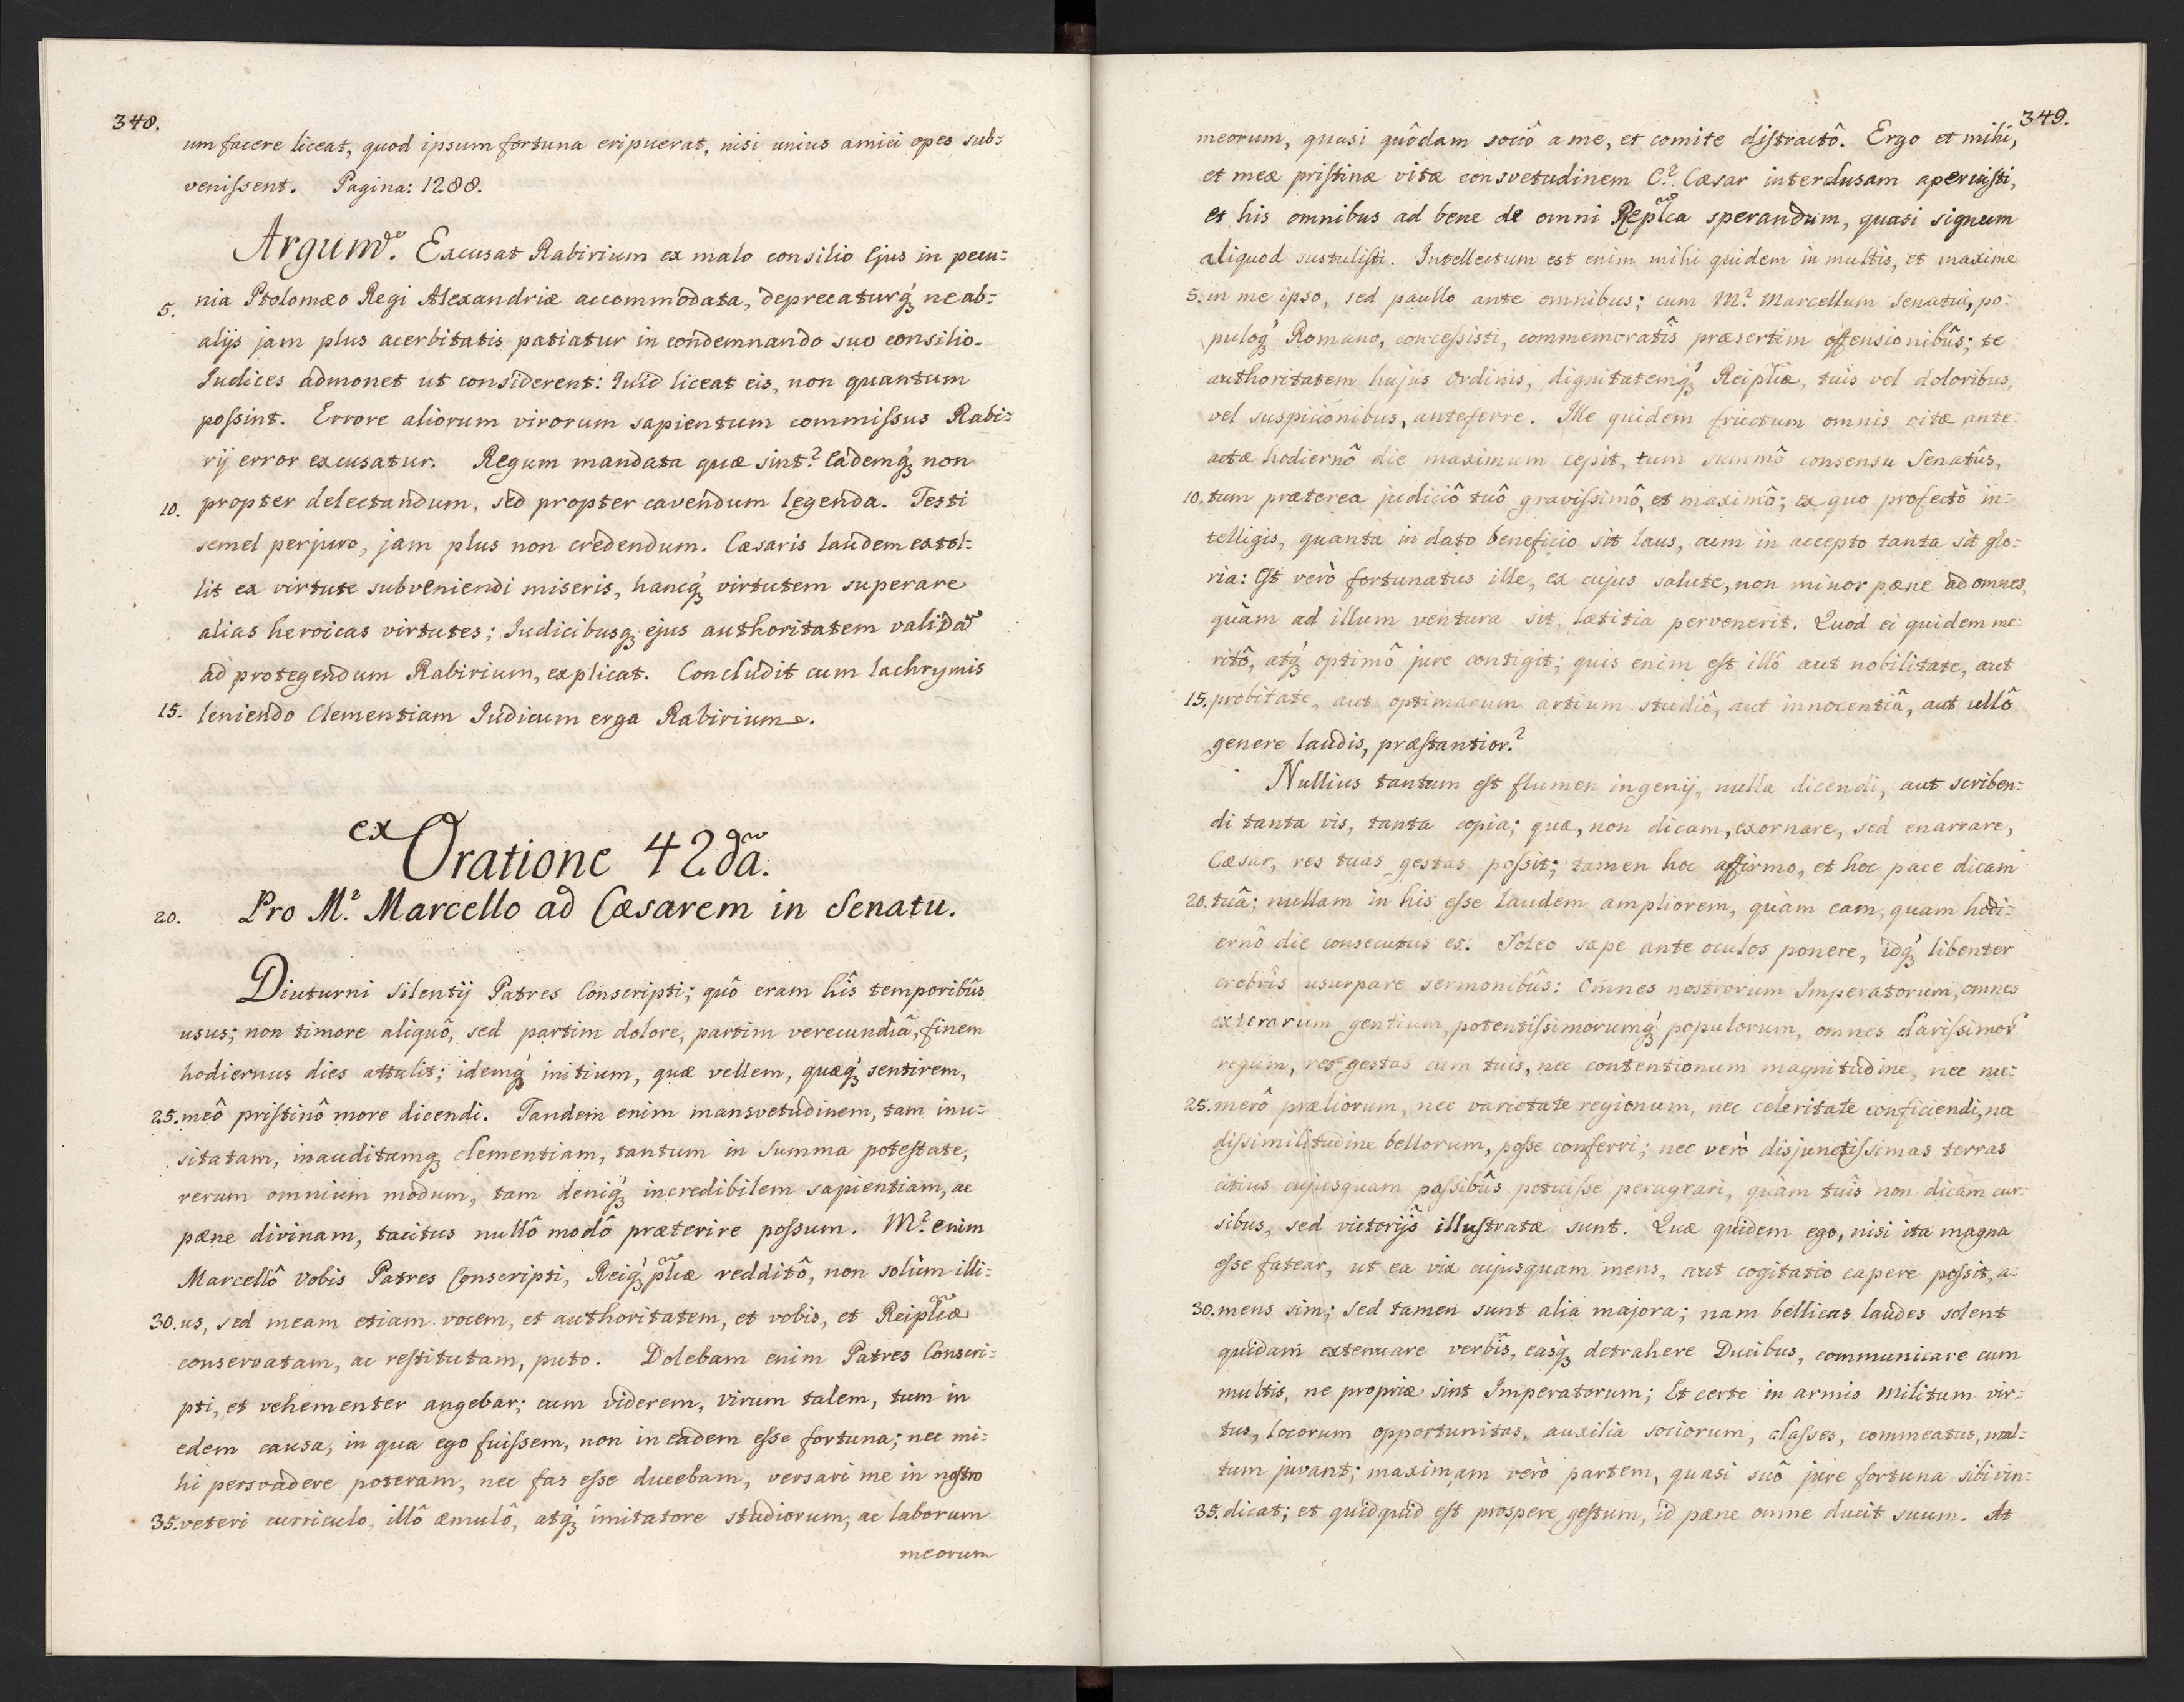 348.
um facere liceat, quod ipsum fortuna eripuerat, nisi unius amici opes sub=
venissent. Pagina: 1288.
Argum̃. Excusat Rabirium ex malo consilio Ejus in pecu=
nia Ptolomæo Regi Alexandriæ accommodata, deprecaturq́ꝫ ne ab=
5. alijs jam plus acerbitatis patiatur in condemnando suo consilio.
Iudices admonet ut considerent: Quid liceat eis, non quantum
possint. Errore aliorum virorum sapientum commissus Rabi=
rij error excusatur. Regum mandata quæ sint? Eademq́ꝫ non
10. propter delectandum, sed propter cavendum legenda. Testi
semel perjuro, jam plus non credendum. Cæsaris laudem extol=
lit ex virtute subveniendi miseris, hancq́ꝫ virtutem superare
alias heroicas virtutes; Iudicibusqꝫ ejus authoritatem validã
ad protegendum Rabirium, explicat. Concludit cum lachrymis
15. leniendo Clementiam Iudicum erga Rabirium.
ex Oratione 42da.
20. Pro M.² Marcello ad Cæsarem in Senatu.
Diuturni Silentij Patres Conscripti; quô eram hîs temporibûs
usus; non timore aliquô, sed partim dolore, partim verecundiâ, finem
hodiernus dies attulit; idemq́ꝫ initium, quæ vellem, quæq́ꝫ sentirem,
25. meô pristinô more dicendi. Tandem enim mansvetudinem, tam inu=
sitatam, inauditamqꝫ clementiam, tantum in Summa potestate,
rerum omnium modum, tam deniq́ꝫ incredibilem sapientiam, ac
pæne divinam, tacitus nullô modô præterire possum. M.² enim
Marcellô Vobis Patres Conscripti, Reiq́ꝫ pl̃cæ redditô, non solùm illi=
30. us, sed meam etiam vocem, et authoritatem, et vobis, et Reipl̃cæ
conservatam, ac restitutam, puto. Dolebam enim Patres Conscri=
pti, et vehementer angebar; cum viderem, virum talem, tum in
edem causa, in qua ego fuissem, non in eadem esse fortuna; nec mi=
hi persvadere poteram, nec fas esse ducebam, versari me in nostro
35. veteri curriculo, illô æmulô, atq́ꝫ imitatore studiorum, ac laborum
meorum
349.
meorum, quasi quôdam sociô a me, et comite distractô. Ergo et mihi,
et meæ pristinæ vitæ consvetudinem C.² Cæsar interclusam aperuisti,
et his omnibus ad bene de omni Repl̃ca sperandum, quasi signum
aliquod sustulisti. Intellectum est enim mihi quidem in multis, et maxime
5. in me ipso, sed paullo ante omnibus; cum M.² Marcellum Senatui, po=
puloq́ꝫ Romano, concessisti, commemoratîs præsertim offensionibûs; te
authoritatem hujus Ordinis, dignitatemq́ꝫ Reipl̃cæ, tuis vel doloribus,
vel suspicionibus, anteferre. Ille quidem fructum omnis vitæ ante=
actæ hodiernô die maximum cepit, tum summô consensu Senatûs,
10. tum præterea judiciô tuô gravissimô, et maximô; ex quo profectò in=
telligis, quanta in dato beneficio sit laus, cum in accepto tanta sit glo=
ria: Est verò fortunatus ille, ex cujus salute, non minor pæne ad omnes,
quàm ad illum ventura sit, lætitia pervenerit. Quod ei quidem me=
ritô, atq́ꝫ optimô jure contigit; quis enim est illô aut nobilitate, aut
15. probitate, aut optimarum artium studiô, aut innocentiâ, aut ullô
genere laudis, præstantior?
Nullius tantum est flumen ingenij, nulla dicendi, aut scriben=
di tanta vis, tanta copia; quæ, non dicam, exornare, sed enarrare,
Cæsar, res tuas gestas possit; tamen hoc affirmo, et hoc pace dicam
20. tuâ; nullam in his esse laudem ampliorem, quàm eam, quam hodi=
ernô die consecutus es. Soleo sæpe ante oculos ponere, idq́ꝫ libenter
crebrîs usurpare sermonibûs: Omnes nostrorum Imperatorum, omnes
exterarum gentium, potentissimorumq́ꝫ populorum, omnes clarissimor̃
regum, res gestas cum tuis, nec contentionum magnitudine, nec nu=
25. merô præliorum, nec varietate regionum, nec celeritate conficiendi, nec
dissimilitudine bellorum, posse conferri; nec verò disjunctissimas terras
citius cujusquam passibûs potuisse peragrari, quàm tuis non dicam cur=
sibus, sed victorijs illustratæ sunt. Quæ quidem ego, nisi ita magna
esse fatear, ut ea vix cujusquam mens, aut cogitatio capere possit, a=
30. mens sim; sed tamen sunt alia majora; nam bellicas laudes solent
quidam extenuare verbîs, easq́ꝫ detrahere Ducibus, communicare cum
multis, ne propriæ sint Imperatorum; Et certe in armis militum vir=
tus, locorum opportunitas, auxilia sociorum, classes, commeatus, mul=
tum juvant; maximam verò partem, quasi suô jure fortuna sibi vin=
35. dicat; et quidquid est prospere gestum, id pæne omne ducit suum. At